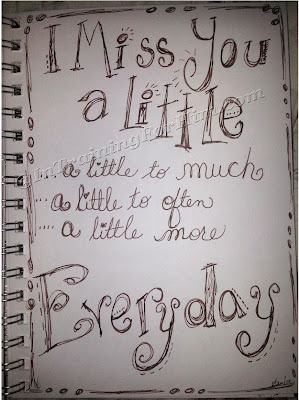 I Miss You
a Little
....a little to much
....a little to often
.... a little more
Everyday